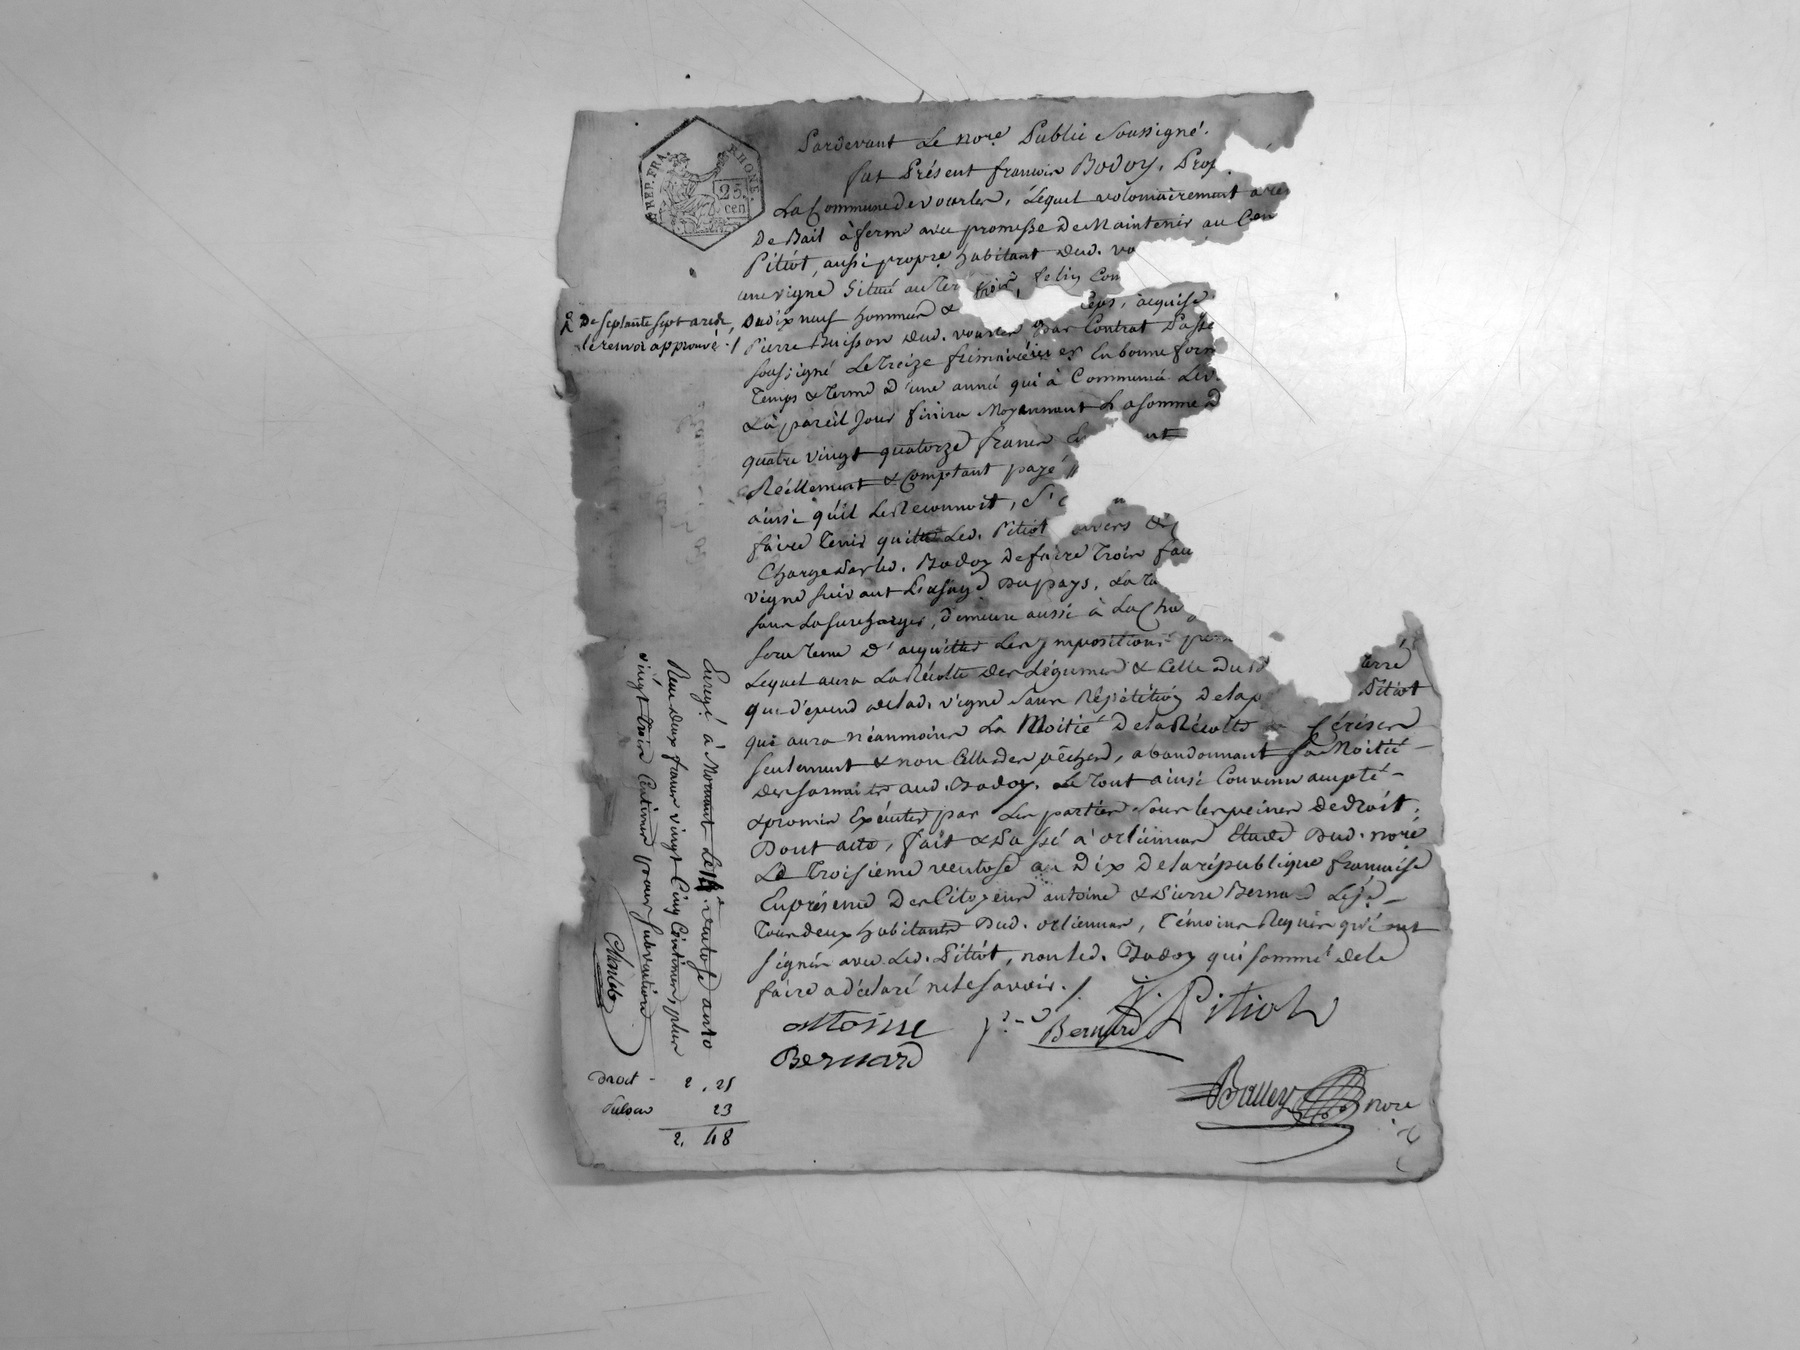 REP. FRA. RHONE.
25
cen
Pardevant Le nore. Public soussigné.
fut Présent francois Bodoy, Prop
La Commune de vourles, Lequel volontairement a
De Bail à ferme avec promesse De Maintenir au
Pitiot, aussi propre. habitant dud. vo
une vigne Situé au Ter
& De septante sept ares,
le renvoi approuvé ./
Dudix neuf hommés & ceps, acquise
Pierre Buisson dud. vourles par Contrat Passé
soussigné Le Treize frimaire es En bonne form
Temps & Terme D'une année qui à Commencé Led.
& à pareil Jour finira Moyennant La somme D
quatre vingt quatorze francs
Réellement & Comptant payé
ainsi qu'il Le Reconnoit,
faire Tenir quitte Led. Pitiot envers
Charge Par Led. Badoy De faire Trois
vigne suivant L'usage Du pays, La
sans La surcharger, demeure aussi à La Cha
sera Tenu D'acquitter Les Impositions
Lequel aura La Récolte Des Légumes & Celle Du
qui dépend de lad. vigne Sans Répétition De la Pitiot
qui aura néanmoins La Moitié De la Récolte Cérises
seulement & non Celle des pêches, abandonnant sa Moitié
Des sarments aud. Badoy. Le Tout ainsi Convenu accepté
& promis Exécuter par Les parties sous les peines De droit.
Dont acte, fait & Passé à orliennas Etude Dud. nore
Le Troisieme ventose an Dix De la république francaise
En présence Des Citoyens antoine & Pierre Bernard
Tous deux habitants Dud. orliennas, Témoins Requis qui ont
signés avec Led. Pitiot, non led. Badoy qui sommé de le
faire a déclaré ne le savoir. /.
attoine Bernard
Bernard
Pitiot
Balley nore
Enregé. à Mornant Le 14 ventose an 10
Reçu Deux francs vingt Cinq Centimes, plus
vingt trois Centimes pour subvention
Droit - 2, 25
Subon 23
2, 48